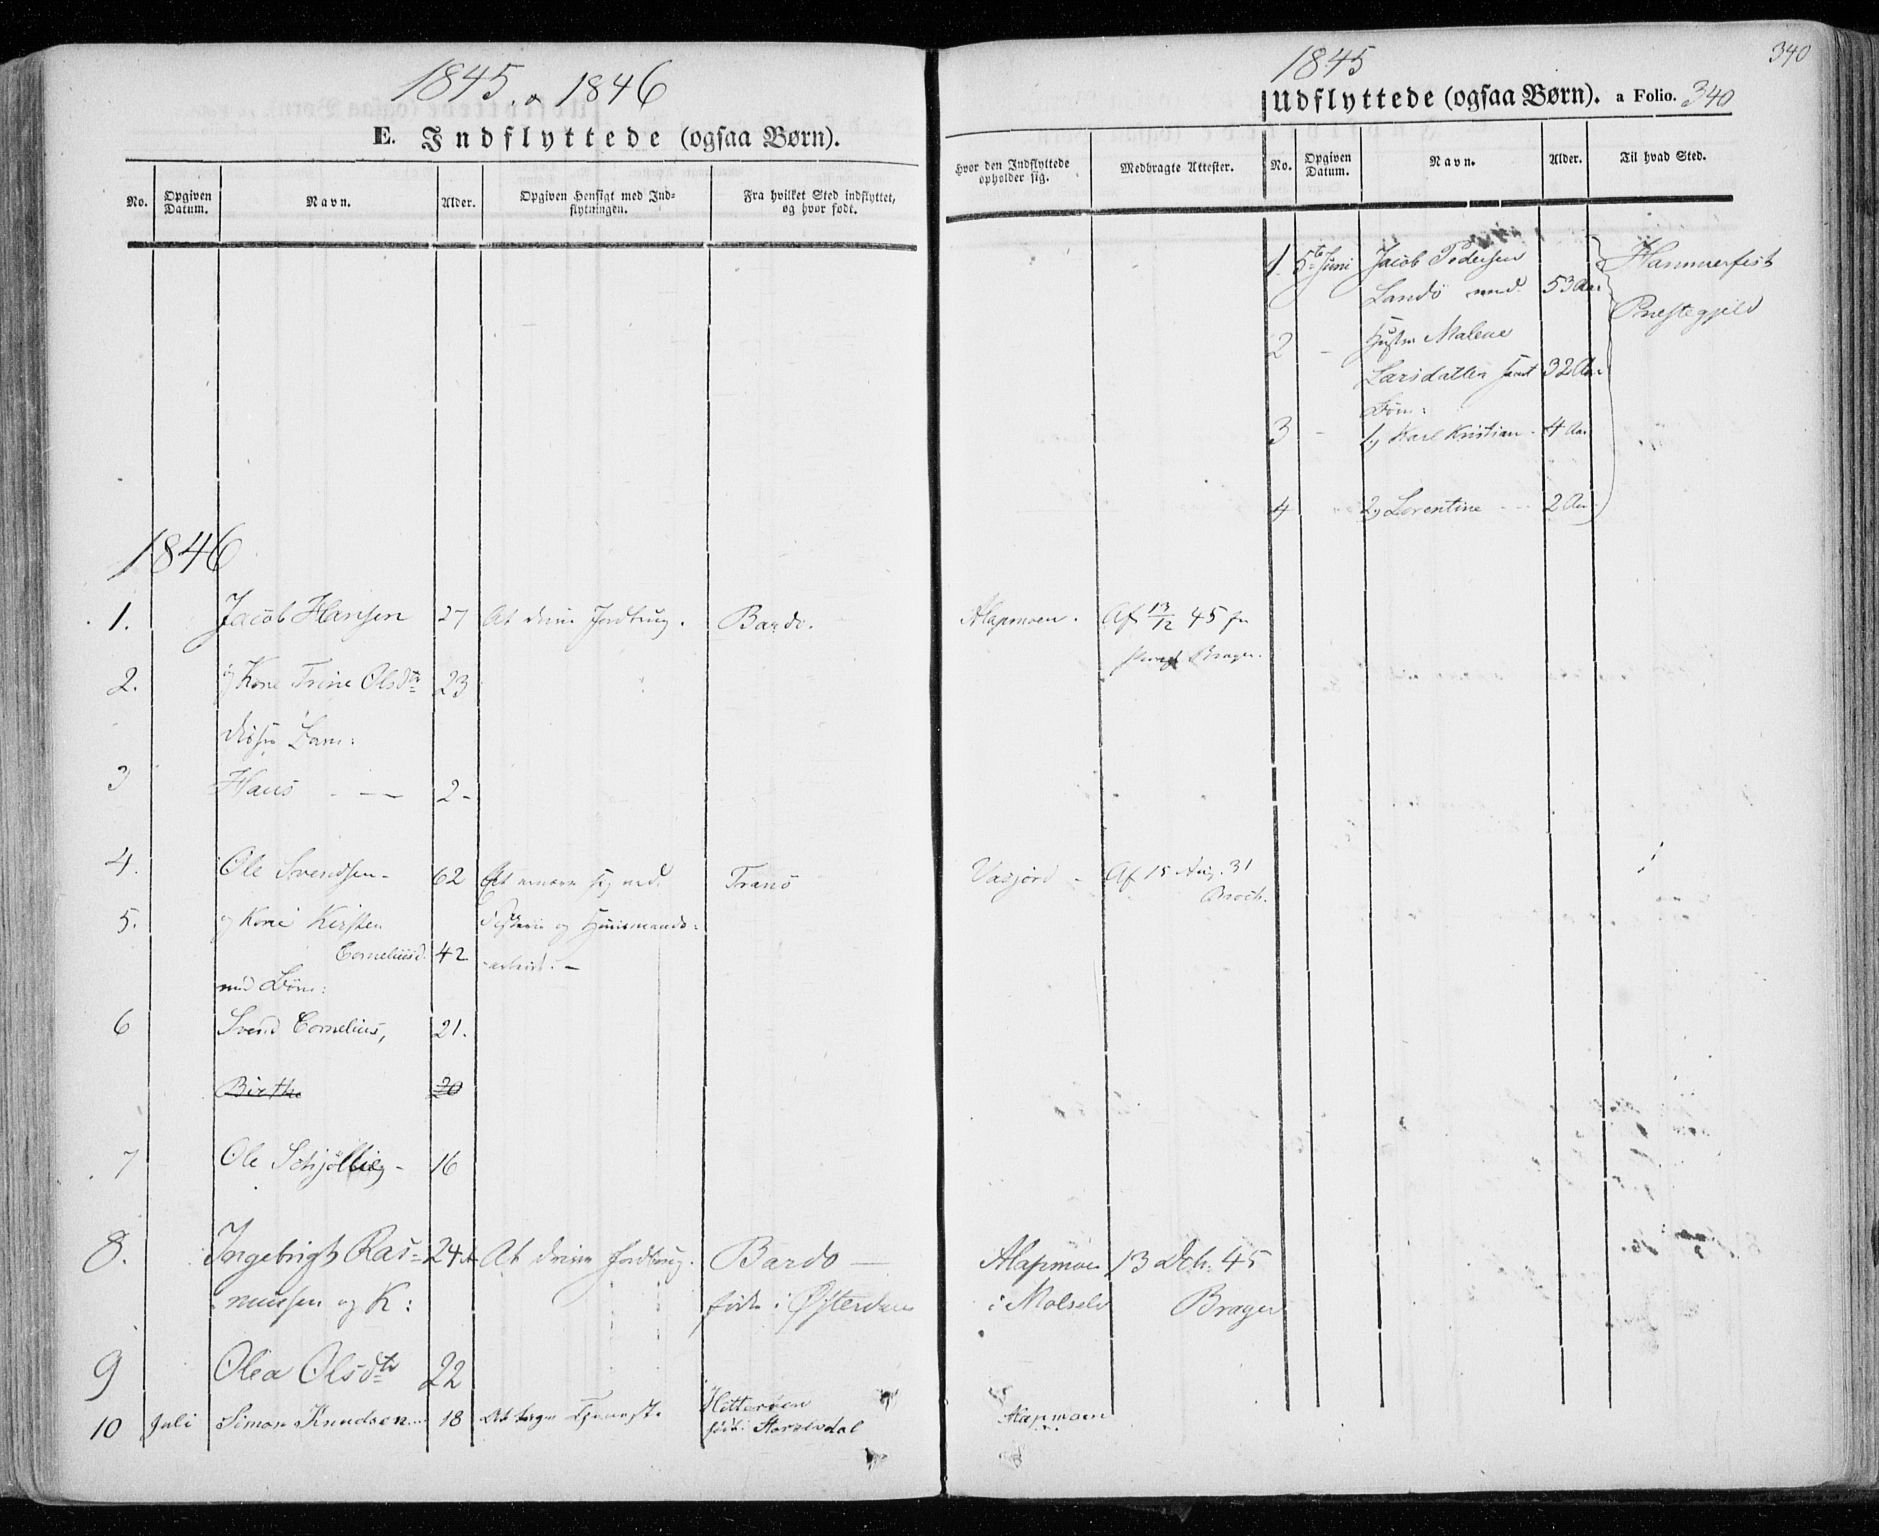 1845. & 1846
E. Indflyttede (ogsaa Børn).
No.
Opgiven Datum.
Navn.
Alder.
Opgiven Hensigt med Ind-
flytningen.
Fra hvilket Sted indflyttet,
og hvor født.
1846
1. Jacob Hansen 27 At drive Jordbrug. Bardo.
2. og Kone Trine Olsdtr 23
disses Barn:
3 Hans - — 2 -
4. Ole Svendsen - 62 At ernære sig ved Tranö
5. og Kone Kirsten Fiskerie og Huusmands-
Corneliusd. 42 -arbeid. -
med Börn:
6 Svend Cornelius, 21.
Birthe 20
7 Ole 16
8. Ingebrigt Ras- 24 At drive Jordbrug. Bardo —
mussen og K: född i Østerdalen
9 Olea Olsdtr 22
10 Juli Simon Knudsen 18 At tage Tjeneste Hitterøen
född i
340
1845
Udflyttede (ogsaa Børn). a Folio. 340
Hvor den Indflyttede
opholder sig.
Medbragte Attester.
No.
Opgiven
Datum.
Navn.
Alder.
Til hvad Sted.
1. 5te Juni Jacob Pedersen Hammerfest
Landö med 53 Aar
Præstegjeld
2 - Hustru Malene
Larsdatter samt 32 Aar
Börn:
3 - 1) Karl Kristian - 4 Aar
4 2) Lorentine - - - 2 Aar
Alapmoen. Af 13/12 45 fra
Brager.
Af 15 Aug. 31
Alapmoen 13 Dcb. 45
i Målselv Brager
Alapmoen